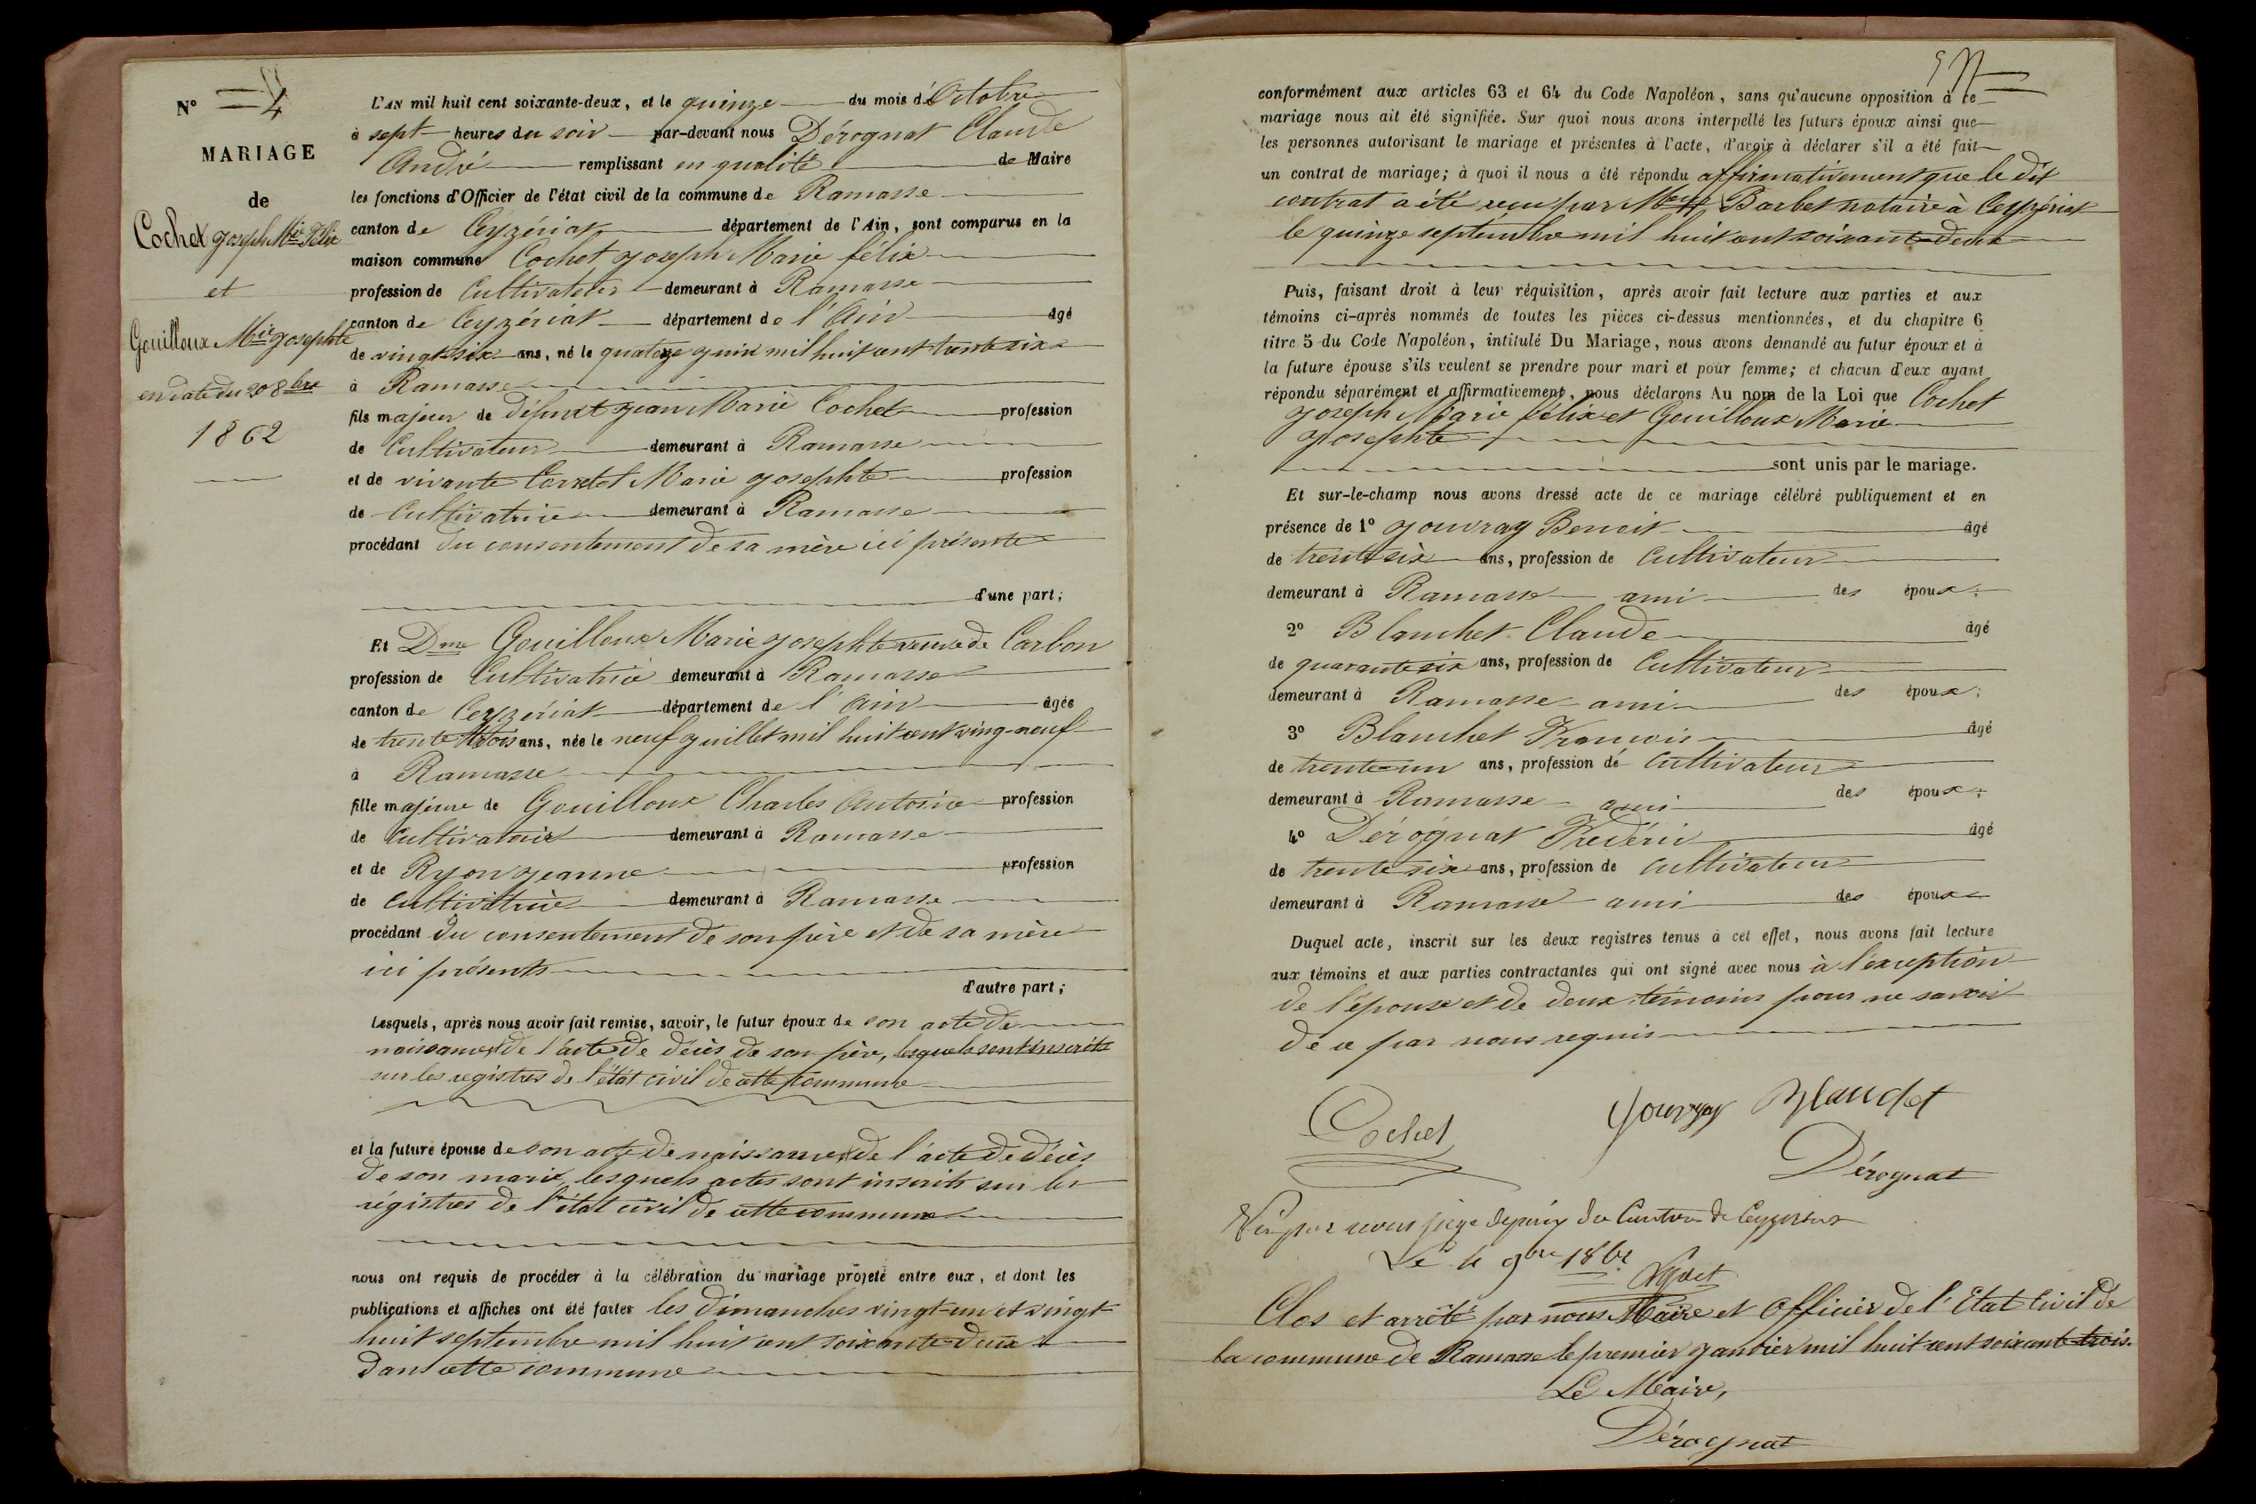 N° 4
MARIAGE
de
Cochet Joseph Mie Félix
et
Gouilloux Mie Josephte
en date du 20 8bre
1862
L'AN mil huit cent soixante-deux, et le quinze du mois d'Octobre
à sept heures du soir par-devant nous Dérognat Claude
André remplissant en qualité de Maire
les fonctions d'Officier de l'état civil de la commune de Ramasse
canton de Ceyzériat département de l'Ain, sont comparus en la
maison commune Cochet Joseph Marie félix
profession de Cultivateur demeurant à Ramasse
canton de Ceyzériat département de l'Ain âgé
de vingt-six ans, né le quatorze juin mil huit cent trente six
à Ramasse
fils majeur de défunt Jean Marie Cochet profession
de Cultivateur demeurant à Ramasse
et de vivante Marie Josephte profession
de Cultivatrice demeurant à Ramasse
procédant du consentement de sa mère ici présente
d'une part;
Et Dme Gouilloux Marie Josephte veuve de Carbon
profession de Cultivatrice demeurant à Ramasse
canton de Ceyzériat département de l'Ain âgée
de trente trois ans, née le neuf Juillet mil huit cent ving-neuf
à Ramasse
fille majeure de Gouilloux Charles Antoine profession
de Cultivateur demeurant à Ramasse
et de Ryon Jeanne profession
de Cultivatrice demeurant à Ramasse
procédant du consentement de son père et de sa mère
ici présents
d'autre part;
Lesquels, après nous avoir fait remise, savoir, le futur époux de son acte de
naissance, de l'acte de décès de son père, lesquels sont inscrits
sur les registres de l'état civil de cette commune
et la future épouse de son acte de naissance, de l'acte de décès
de son mari, lesquels actes sont inscrits sur les
régistres de l'état civil de cette commune
nous ont requis de procéder à la célébration du mariage projeté entre eux, et dont les
publications et affiches ont été faites les dimanches vingt-un et vingt
huit septembre mil huit cent soixante-deux
dans cette commune
conformément aux articles 63 et 64 du Code Napoléon, sans qu'aucune opposition à ce
mariage nous ait été signifiée. Sur quoi nous avons interpellé les futurs époux ainsi que
les personnes autorisant le mariage et présentes à l'acte, d'avoir à déclarer s'il a été fait
un contrat de mariage; à quoi il nous a été répondu affirmativement que le dit
contrat a été reçu par Barbet notaire à Ceyzériat
le quinze septembre mil huit cent soixante-deux
Puis, faisant droit à leur réquisition, après avoir fait lecture aux parties et aux
témoins ci-après nommés de toutes les pièces ci-dessus mentionnées, et du chapitre 6
titre 5 du Code Napoléon, intitulé Du Mariage, nous avons demandé au futur époux et à
la future épouse s'ils veulent se prendre pour mari et pour femme; et chacun d'eux ayant
répondu séparément et affirmativement, nous déclarons Au nom de la Loi que Cochet
Joseph Marie félix et Gouilloux Marie
Josephte
sont unis par le mariage.
Et sur-le-champ nous avons dressé acte de ce mariage célébré publiquement et en
présence de 1° Jouvray Benoit âgé
de trente six ans, profession de Cultivateur
demeurant à Ramasse ami des époux;
2° Blanchet Claude âgé
de quarante six ans, profession de Cultivateur
demeurant à Ramasse ami des époux;
3° Blanchet Francois âgé
de trente-un ans, profession de Cultivateur
demeurant à Ramasse ami des époux;
4° Dérognat Fredéric âgé
de trente six ans, profession de Cultivateur
demeurant à Ramasse ami des époux
Duquel acte, inscrit sur les deux registres tenus à cet effet, nous avons fait lecture
aux témoins et aux parties contractantes qui ont signé avec nous à l'exception
de l'épouse et de deux témoins pour ne savoir
de ce par nous requis
Cochet Jouvray
Dérognat
Vu par nous juge de paix du Canton de Ceyzériat
Le 4 9bre 1862
Clos et arrêté par nous Maire et Officier de l'Etat Civil de
la commune de Ramasse le premier janvier mil huit cent soixante-trois.
Le Maire,
Dérognat